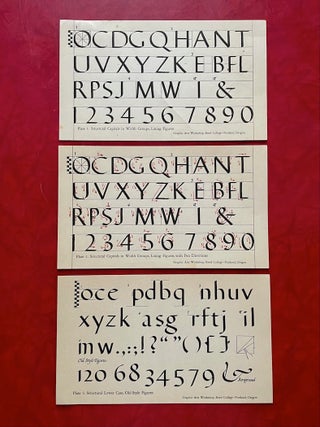 OCDGQHANT
UVXYZKEBFL
RPSJ MW I &
1234567890
Plate 1. Structural Capitals in Width Groups, Lining Figures
Graphic Arts Workshop, Reed College · Portland, Oregon
OCDGQHANT
UVXYZKEBFL
RPSJ MW I &
1234567890
Graphic Arts Workshop, Reed College · Portland, Oregon
oce pdbq nhuv
xyzk asg rftj il
mw.,:;!?“”()[]
Old Style Figures
120 68 34579 &
Ampersand
Structural Lower Case, Old Style Figures
Graphic Arts Workshop, Reed College · Portland, Oregon